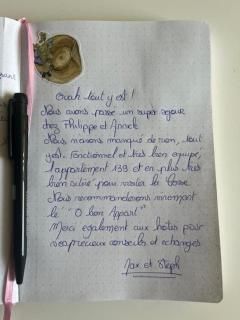 Ouah tout y est !
Nous avons passé un super séjour
chez Philippe et Annick
Nous n'avons manqué de rien, tout
y est. Fonctionnel et très bien équipé,
l'appartement 133 et en plus très
bien situé pour visiter la Corse
Nous recommanderons vivement
le "O bon Appart"
Merci également aux hôtes pour
précieux conseils et échanges
Max et Steph